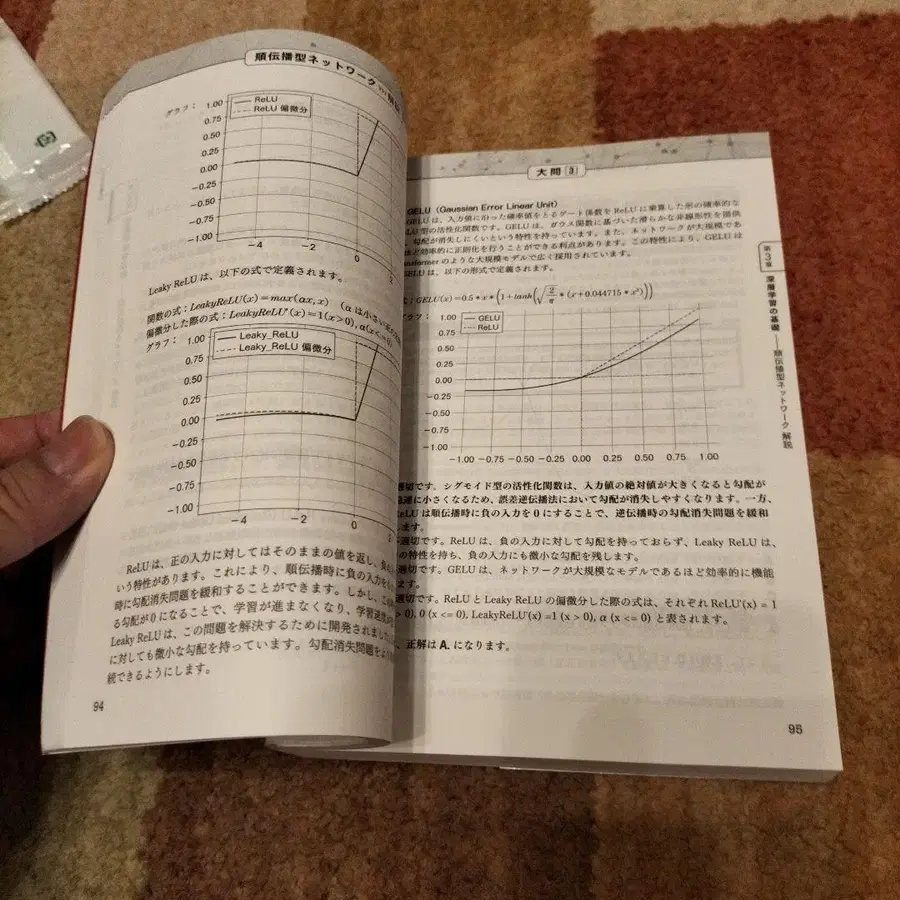 順伝播型ネットワーク
グラフ：
ReLU
ReLU 偏微分
1.00
0.75
0.50
0.25
0.00
−0.25
−0.50
−0.75
−1.00
−4
−2
0
2
Leaky ReLU は、以下の式で定義されます。
関数の式：LeakyReLU(x)=max(αx, x) (α は小さい
偏微分した際の式：LeakyReLU'(x)=1(x>0), α(x<=0)
グラフ：
Leaky_ReLU
Leaky_ReLU 偏微分
1.00
0.75
0.50
0.25
0.00
−0.25
−0.50
−0.75
−1.00
−4
−2
0
2
ReLU は、正の入力に対してはそのままの値を返し、負の
いう特性があります。これにより、順伝播時に負の入力を
時に勾配消失問題を緩和することができます。しかし、
る勾配が 0 になることで、学習が進まなくなり、学習速度が
Leaky ReLU は、この問題を解決するために開発されました
に対しても微小な勾配を持っています。勾配消失問題を
続できるようにします。
94
大問 3
GELU（Gaussian Error Linear Unit）
GELU は、入力値に沿った確率値をとるゲート係数を ReLU に乗算した形の確率的な
LU 型の活性化関数です。GELU は、ガウス関数に基づいた滑らかな非線形性を提供
、勾配が消失しにくいという特性を持っています。また、ネットワークが大規模であ
ほど効率的に正則化を行うことができる利点があります。この特性により、GELU は
ansformer のような大規模モデルで広く採用されています。
GELU は、以下の形式で定義されます。
式：GELU(x)=0.5*x*(1+tanh(√2/π*(x+0.044715*x³)))
グラフ：
GELU
ReLU
1.00
0.75
0.50
0.25
0.00
−0.25
−0.50
−0.75
−1.00
−1.00 −0.75 −0.50 −0.25 0.00 0.25 0.50 0.75 1.00
適切です。シグモイド型の活性化関数は、入力値の絶対値が大きくなると勾配が
急速に小さくなるため、誤差逆伝播法において勾配が消失しやすくなります。一方、
ReLU は順伝播時に負の入力を 0 にすることで、逆伝播時の勾配消失問題を緩和
します。
適切です。ReLU は、負の入力に対して勾配を持っておらず、Leaky ReLU は、
の特性を持ち、負の入力にも微小な勾配を残します。
適切です。GELU は、ネットワークが大規模なモデルであるほど効率的に機能
ます。
適切です。ReLU と Leaky ReLU の偏微分した際の式は、それぞれ ReLU'(x) = 1
> 0), 0 (x <= 0), LeakyReLU'(x) =1 (x > 0), α (x <= 0) と表されます。
、正解は A. になります。
第3章
深層学習の基礎――順伝播型ネットワーク 解説
95